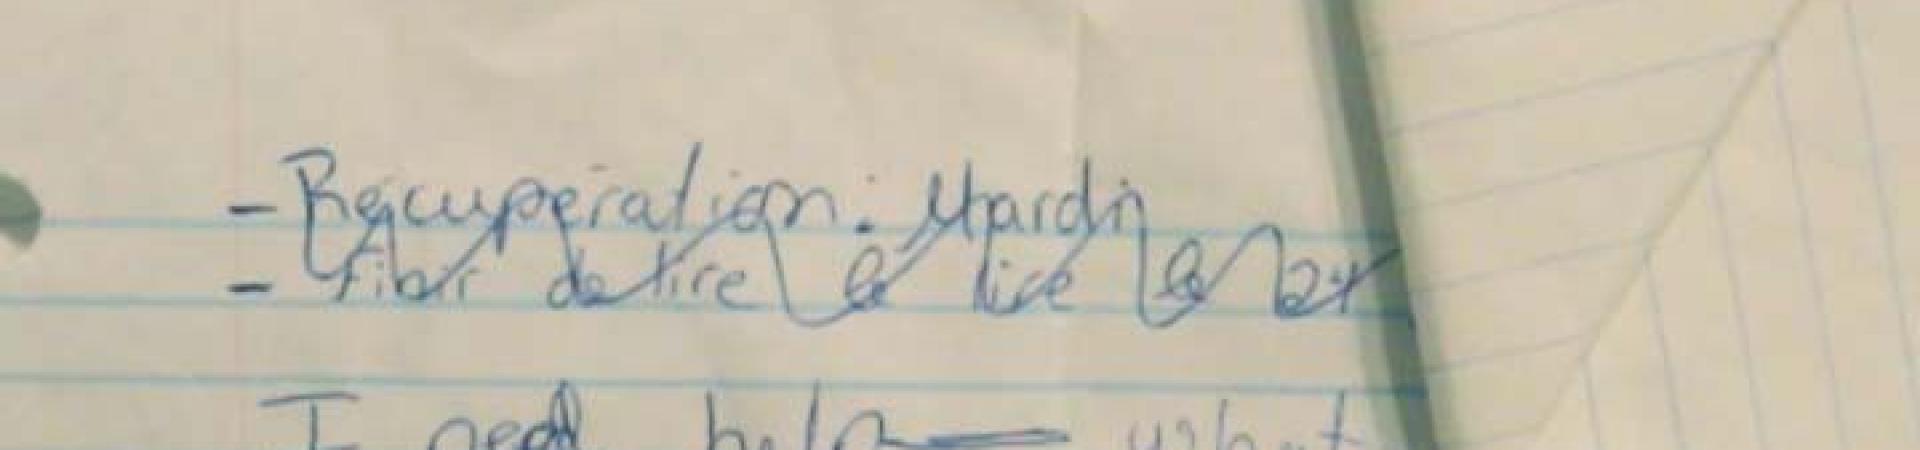 - Récupération: Mardi
- finir de lire le livre le 24
I need help what